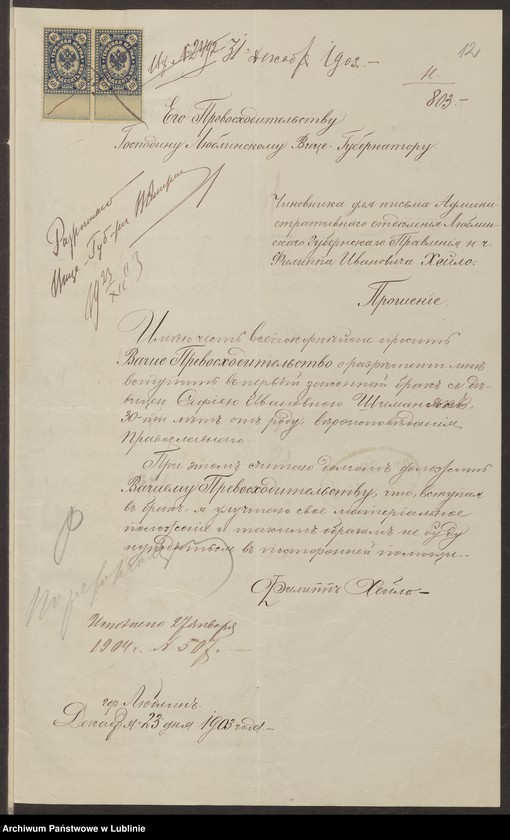 31 Декабр 1903.
12
II.
803.
Его Превосходительству
Господину Люблинскому Вице-Губернатору.
Чиновника для письма Админи-
стративнаго отделенiя Люблин-
скаго Губернскаго Правленiя н. ч.
Филиппа Ивановича Хейло.
Разрешаю
Вице-Губ-р
19 23/XII 3
Прошенiе.
Имею честь всепокорнейше просить
Ваше Превосходительство о разрешенiи мне
вступить в первый законный бракъ съ де-
вицею Софiею Ивановною
30-ти летъ отъ роду, вероисповеданiя
Православнаго.
При этомъ считаю долгомъ доложить
Вашему Превосходительству, что, вступая
въ бракъ, я улучшаю свое матерiальное
положенiе и такимъ образомъ не буду
нуждаться въ посторонней помощи.
Филиппъ Хейло
Исполнено 27 января
1904 г. № 507.
гор. Люблинъ.
Декабря 23 дня 1903 года.
Archiwum Państwowe w Lublinie